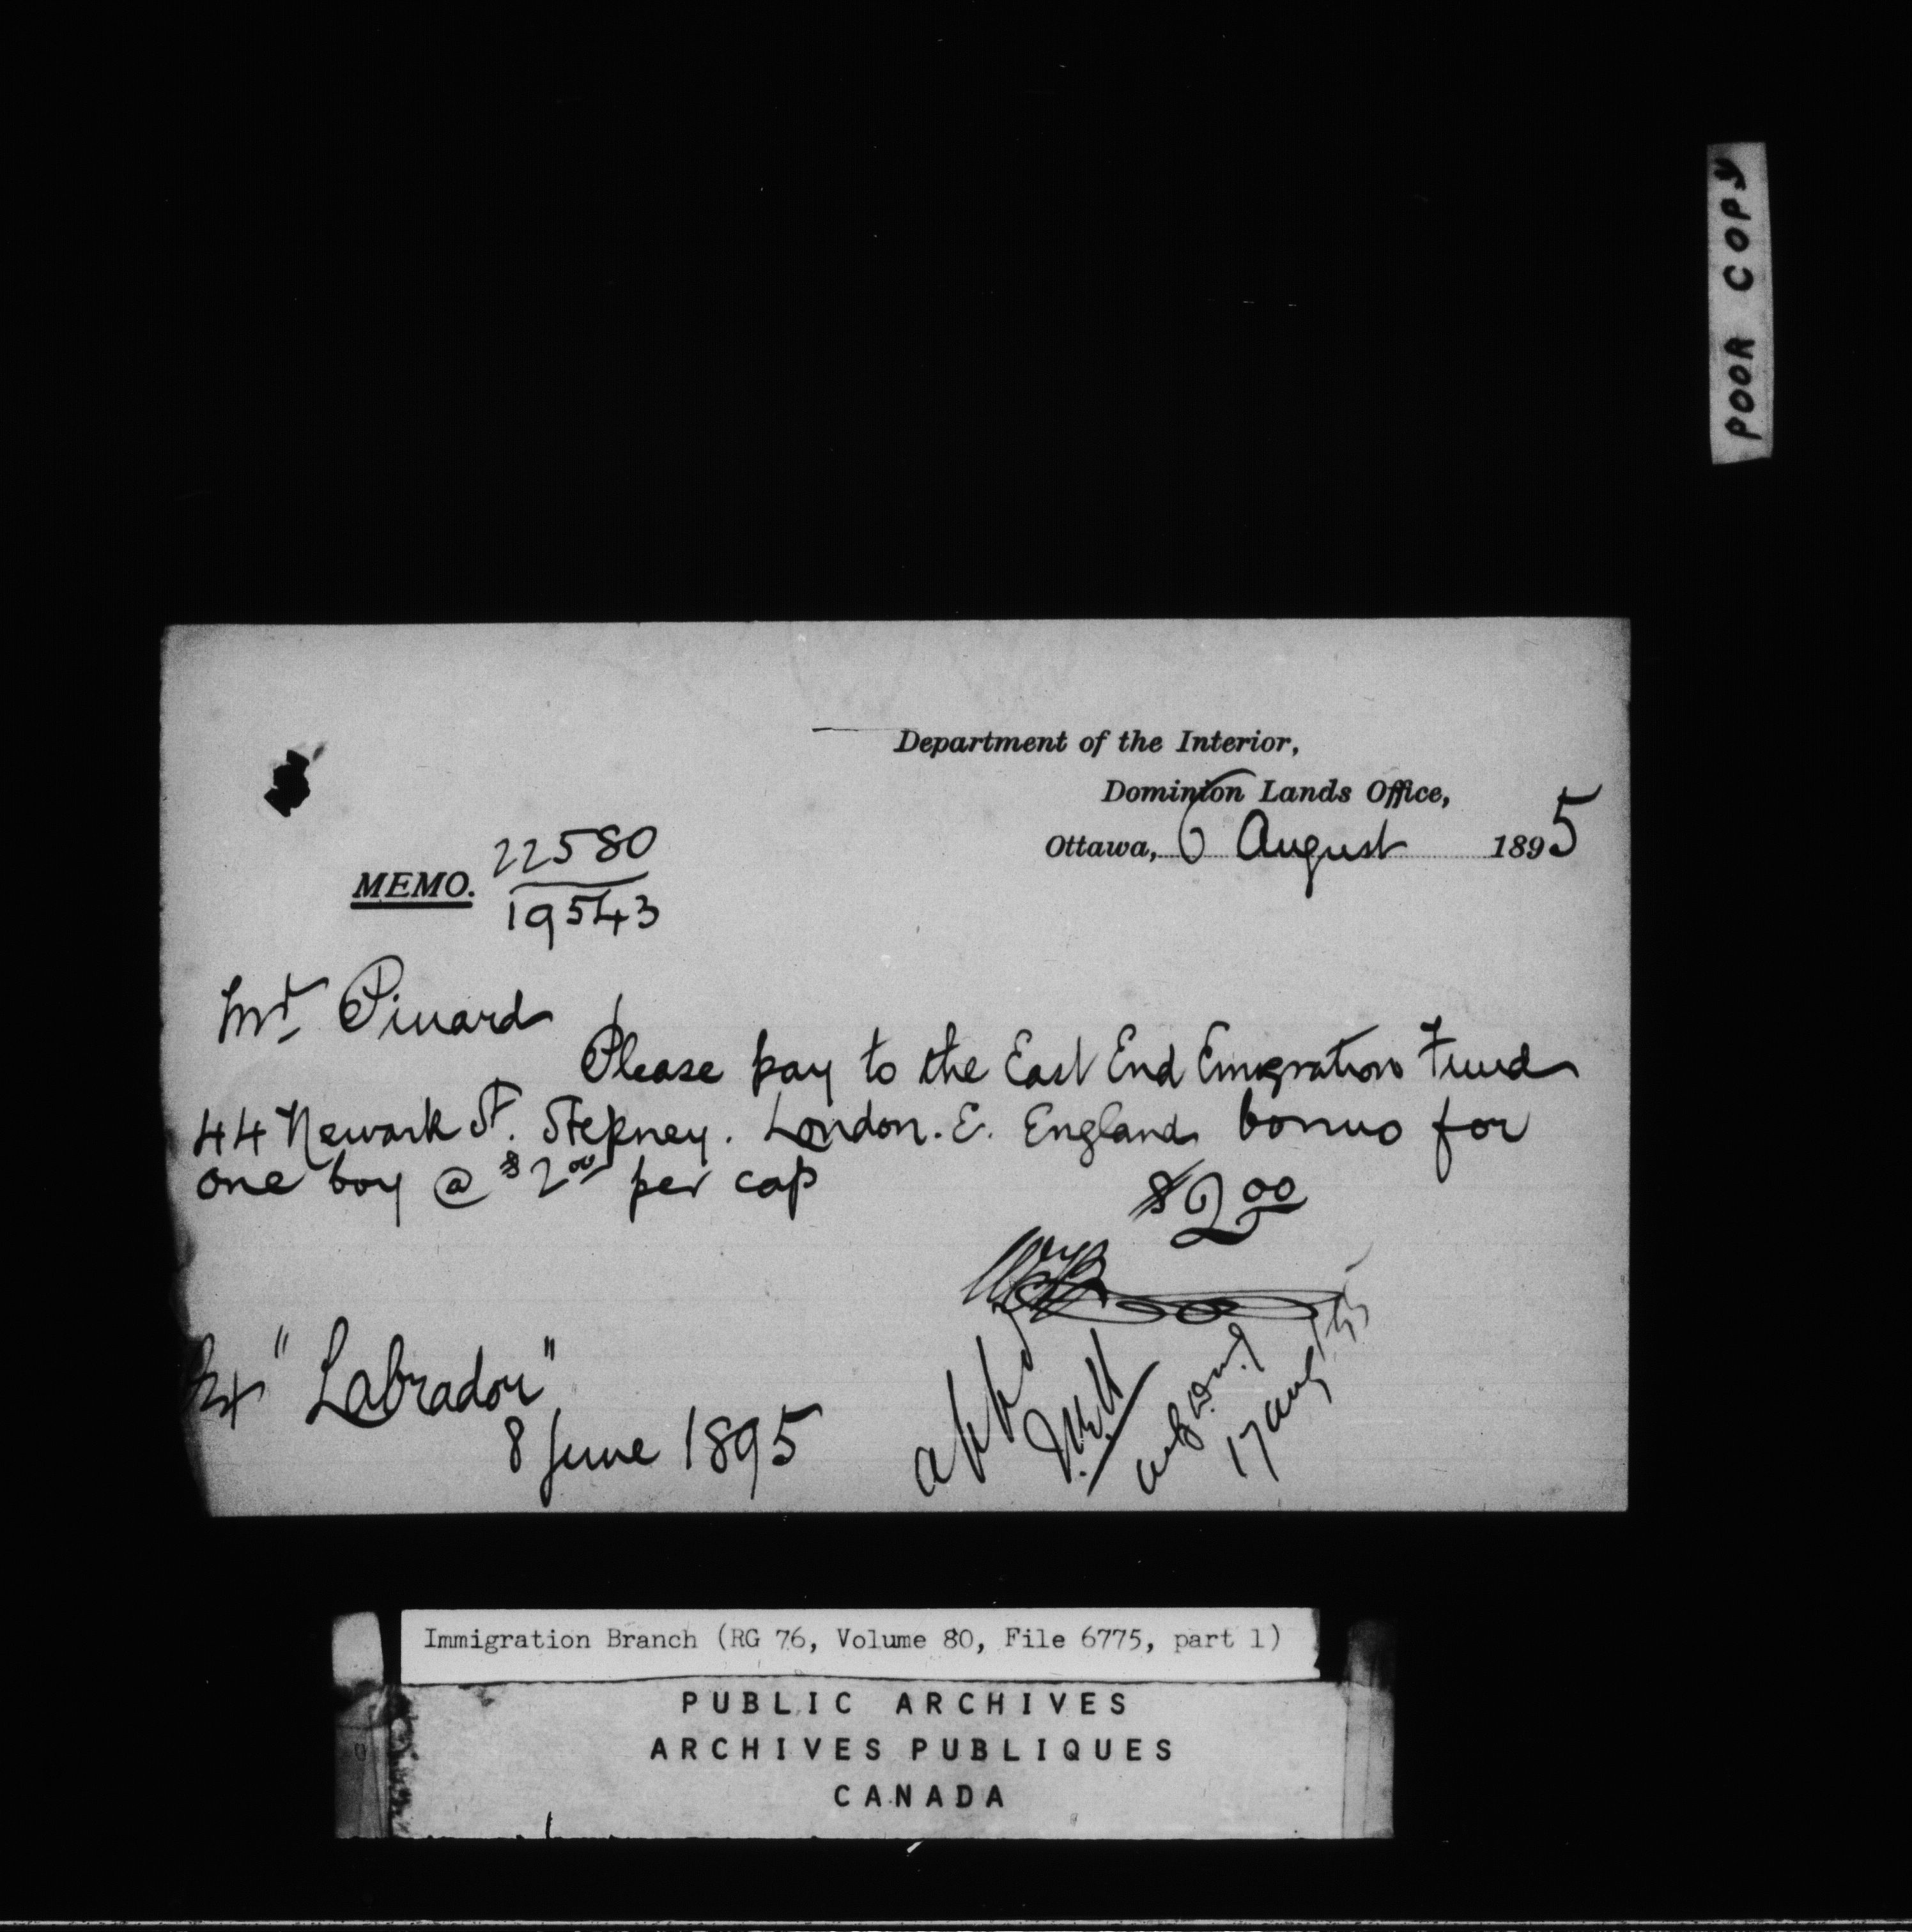 POOR COPY
Department of the Interior,
Dominion Lands Office,
Ottawa, 6 August 1895
MEMO. 22580
19543
Mr. Pinard
Please pay to the East End Emigration Fund
44 Newark St. Stepney. London. E. England bonus for
one boy @ $2.00 per cap
$2.00
"Labrador"
8 June 1895
17 Aug
Immigration Branch (RG 76, Volume 80, File 6775, part 1)
PUBLIC ARCHIVES
ARCHIVES PUBLIQUES
CANADA